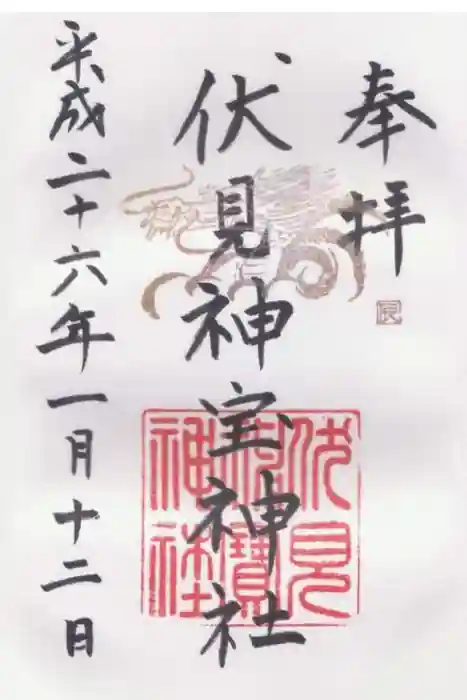 奉拝
辰
伏見神宝神社
伏見神寶神社
平成二十六年一月十二日